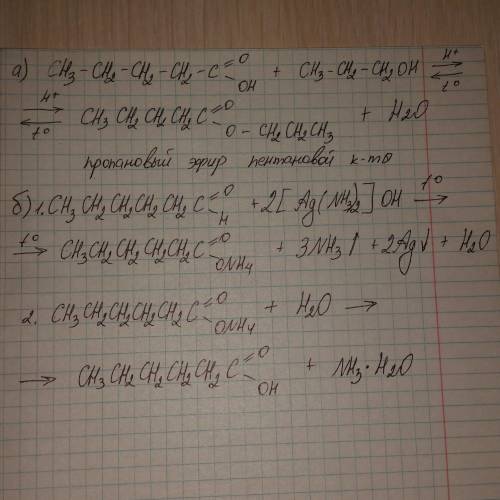 а) CH3-CH2-CH2-CH2-C=O OH + CH3-CH2-CH2OH ⇌ H+ t°
⇌ H+ t° CH3CH2CH2CH2C=O O-CH2CH2CH3 + H2O
пропановый эфир пентановой к-ты
б) 1. CH3CH2CH2CH2CH2C=O H + 2[Ag(NH3)2]OH t° →
t° → CH3CH2CH2CH2CH2C=O ONH4 + 3NH3↑ + 2Ag↓ + H2O
2. CH3CH2CH2CH2CH2C=O ONH4 + H2O →
→ CH3CH2CH2CH2CH2C=O OH + NH3·H2O